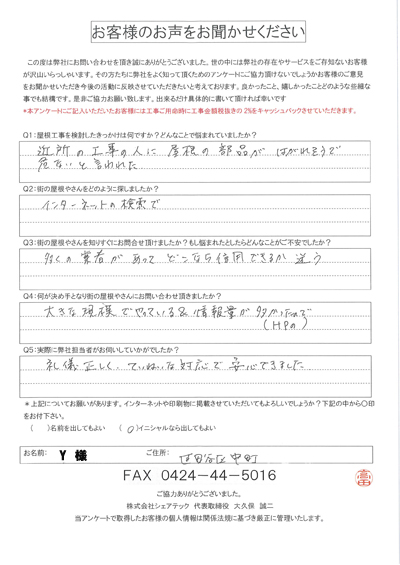 お客様のお声をお聞かせください
この度は弊社にお問い合わせを頂き誠にありがとうございました。世の中には弊社の存在やサービスをご存知ないお客様
が沢山いらっしゃいます。その方たちに弊社をよく知って頂くためのアンケートにご協力頂けないでしょうかお客様のご意見
をお聞かせいただき今後の活動に反映させていただきたいと考えております。良かったこと、嬉しかったことどのような些細な
事でも結構です。是非ご協力お願い致します。出来るだけ具体的に書いて頂ければ幸いです
*本アンケートにご記入いただいたお客様には工事ご用命時に工事金額税抜きの2%をキャッシュバックさせていただきます。
Q1:屋根工事を検討したきっかけは何ですか？どんなことで悩まれていましたか？
近所の工事の人に屋根の部品がはがれそうで
危ないと言われた
Q2:街の屋根やさんをどのように探しましたか？
インターネットの検索で
Q3:街の屋根やさんを知りすぐにお問合せ頂けましたか？もし悩まれたとしたらどんなことがご不安でしたか？
多くの業者があってどこなら信用できるか迷う
Q4:何が決め手となり街の屋根やさんにお問い合わせ頂きましたか？
大きな規模でやっている&情報量が多かったので
(HPの)
Q5:実際に弊社担当者がお伺いしていかがでしたか？
礼儀正しく、ていねいな対応で安心できました
*上記についてお願いがあります。インターネットや印刷物に掲載させていただいてもよろしいでしょうか？下記の中から〇印
をお付け下さい。
( )名前を出してもよい (○)イニシャルなら出してもよい
お名前: Y 様 ご住所: 世田谷区中町
FAX 0424-44-5016
ご協力ありがとうございました。
株式会社シェアテック 代表取締役 大久保 誠二
当アンケートで取得したお客様の個人情報は関係法規に基づき厳正に管理いたします。